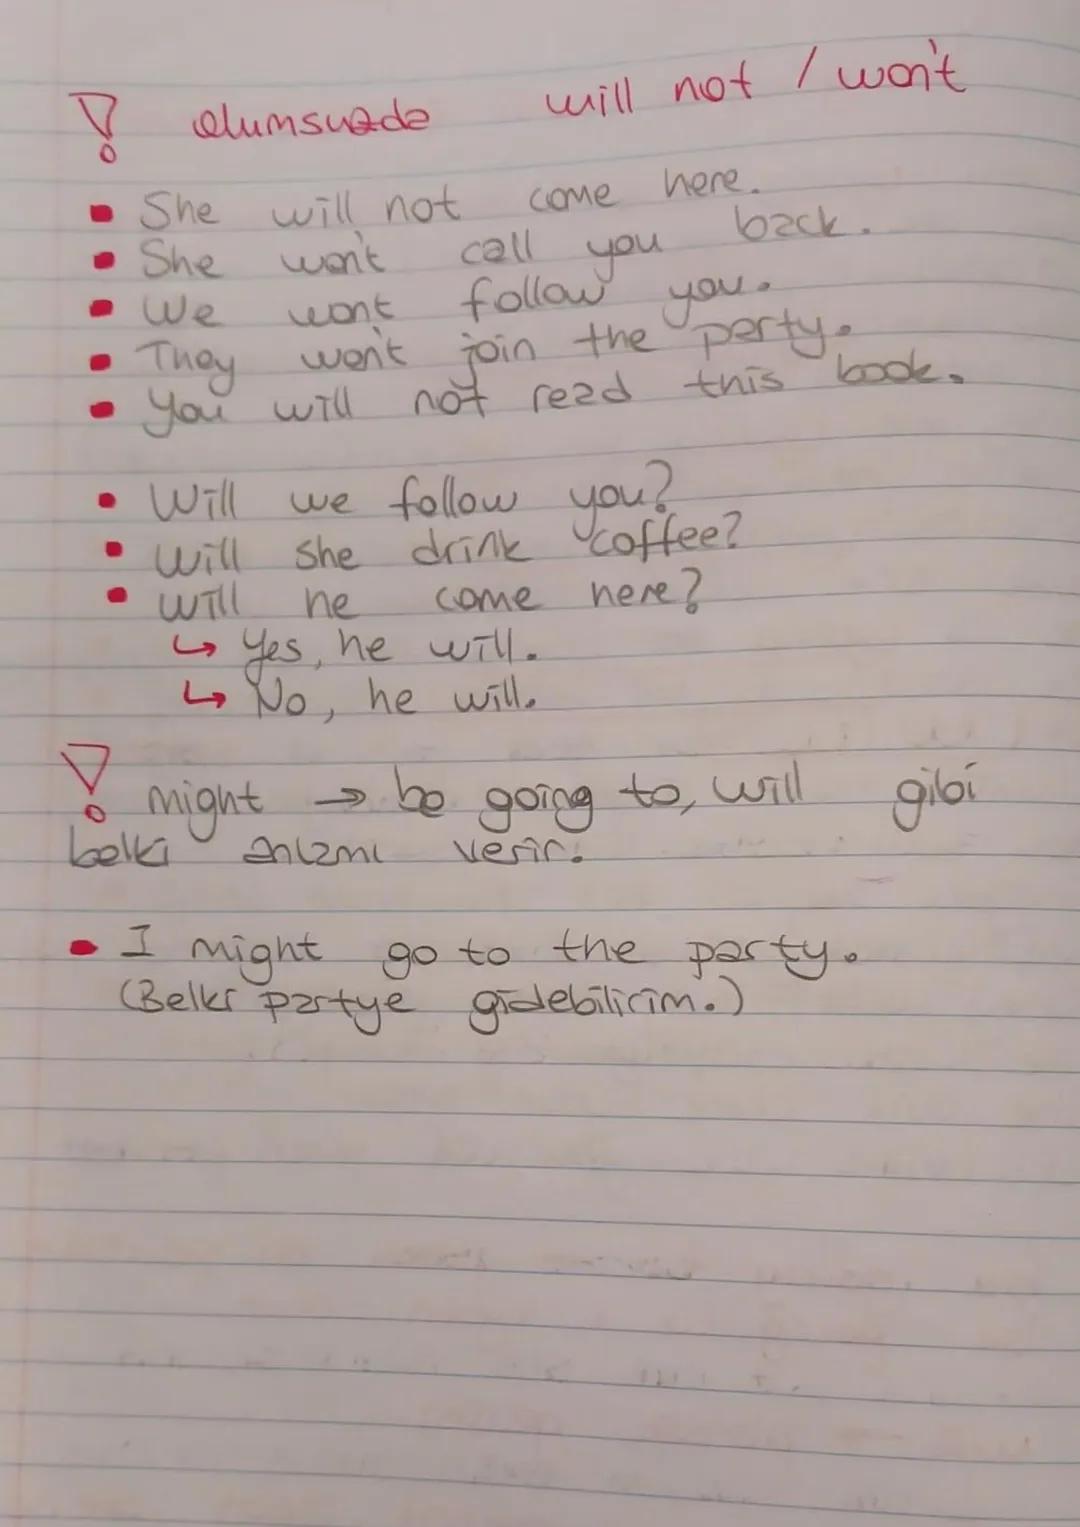 ! olumsuzda will not / won't
• She will not come here.
• She won't call you back.
• We wont follow you.
• They won't join the party.
• You will not read this book.
• Will we follow you?
• Will she drink coffee?
• Will he come here?
↳ Yes, he will.
↳ No, he will.
! might → be going to, will gibi
belki anlamı verir.
• I might go to the party.
(Belki partye gidebilirim.)